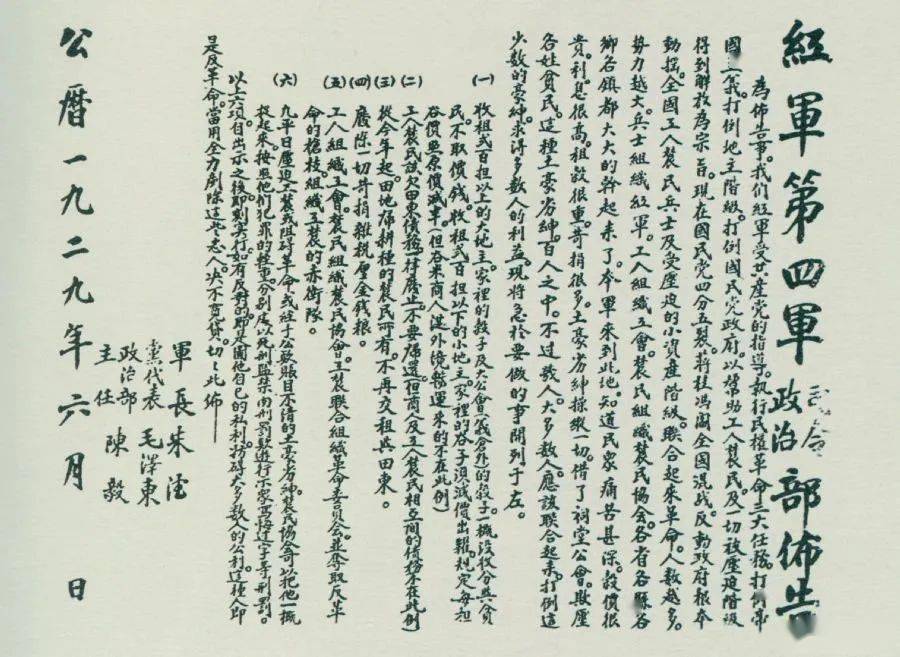 紅軍第四軍司令政治部佈告
為佈告事。我們紅軍受共產黨的指導。執行民權革命三大任務。打倒帝
國主義。打倒地主階級。打倒國民党政府。以幫助工人農民及一切被壓迫階級
得到解放為宗旨。現在國民黨四分五裂。蔣桂馮閻全國混战。反動政府根本
動搖。全國工人農民兵士及受壓迫的小資產階級。聯合起來革命。人数越多。
势力越大。兵士組織紅軍。工人組織工會。農民組織農民協會。各省各縣各
鄉各鎮都大大的幹起来了。本軍來到此地。知道民衆痛苦甚深。穀價很
貴。利息很高。租穀很重。苛捐很多。土豪劣紳操縱一切。借了祠堂公會。欺壓
各姓貧民。這種土豪劣紳。百人之中。不过数人。大多数人應該联合起來。打倒這
少数的豪紳。求得多数人的利益。現将急於要做的事開列于左。
(一)收租弍百担以上的大地主。家裡的穀子及大公會(義倉外)的穀子。一概沒收分與貧
民。不取價錢。收租弍百担以下的小地主。家裡的谷子須減價出糶。規定每担
谷價照原價減半。(但谷米商人從外境辦運來的不在此例)
(二)工人農民該欠田東債務。一律廢止。不要歸還。(但商人及工人農民相互間的債務不在此例)
(三)從今年起。田地歸耕種的農民所有。不再交租與田東。
(四)廢除一切苛捐雜稅厘金錢糧。
(五)工人組織工會。農民組織農民協會。工農联合組織革命委員会。並奪取反革
命的槍枝。組織工農的赤衛隊。
(六)凡平日壓迫工農或阻碍革命。或經手公款賬目不清的土豪劣紳。農民協會可以把他一概
捉起來。按照他们犯罪的輕重。分别處以死刑監禁肉刑罰款遊行示衆寫悔过字等刑罰。
以上六項自出示之後即刻实行。如有反對的。即是圖他自己的私利。妨碍大多数人的公利。這種人即
是反革命。當用全力剷除這些惡人。决不寬貸。切切此佈——
軍長朱德
黨代表毛澤東
政治部主任陳毅
公曆一九二九年六月 日